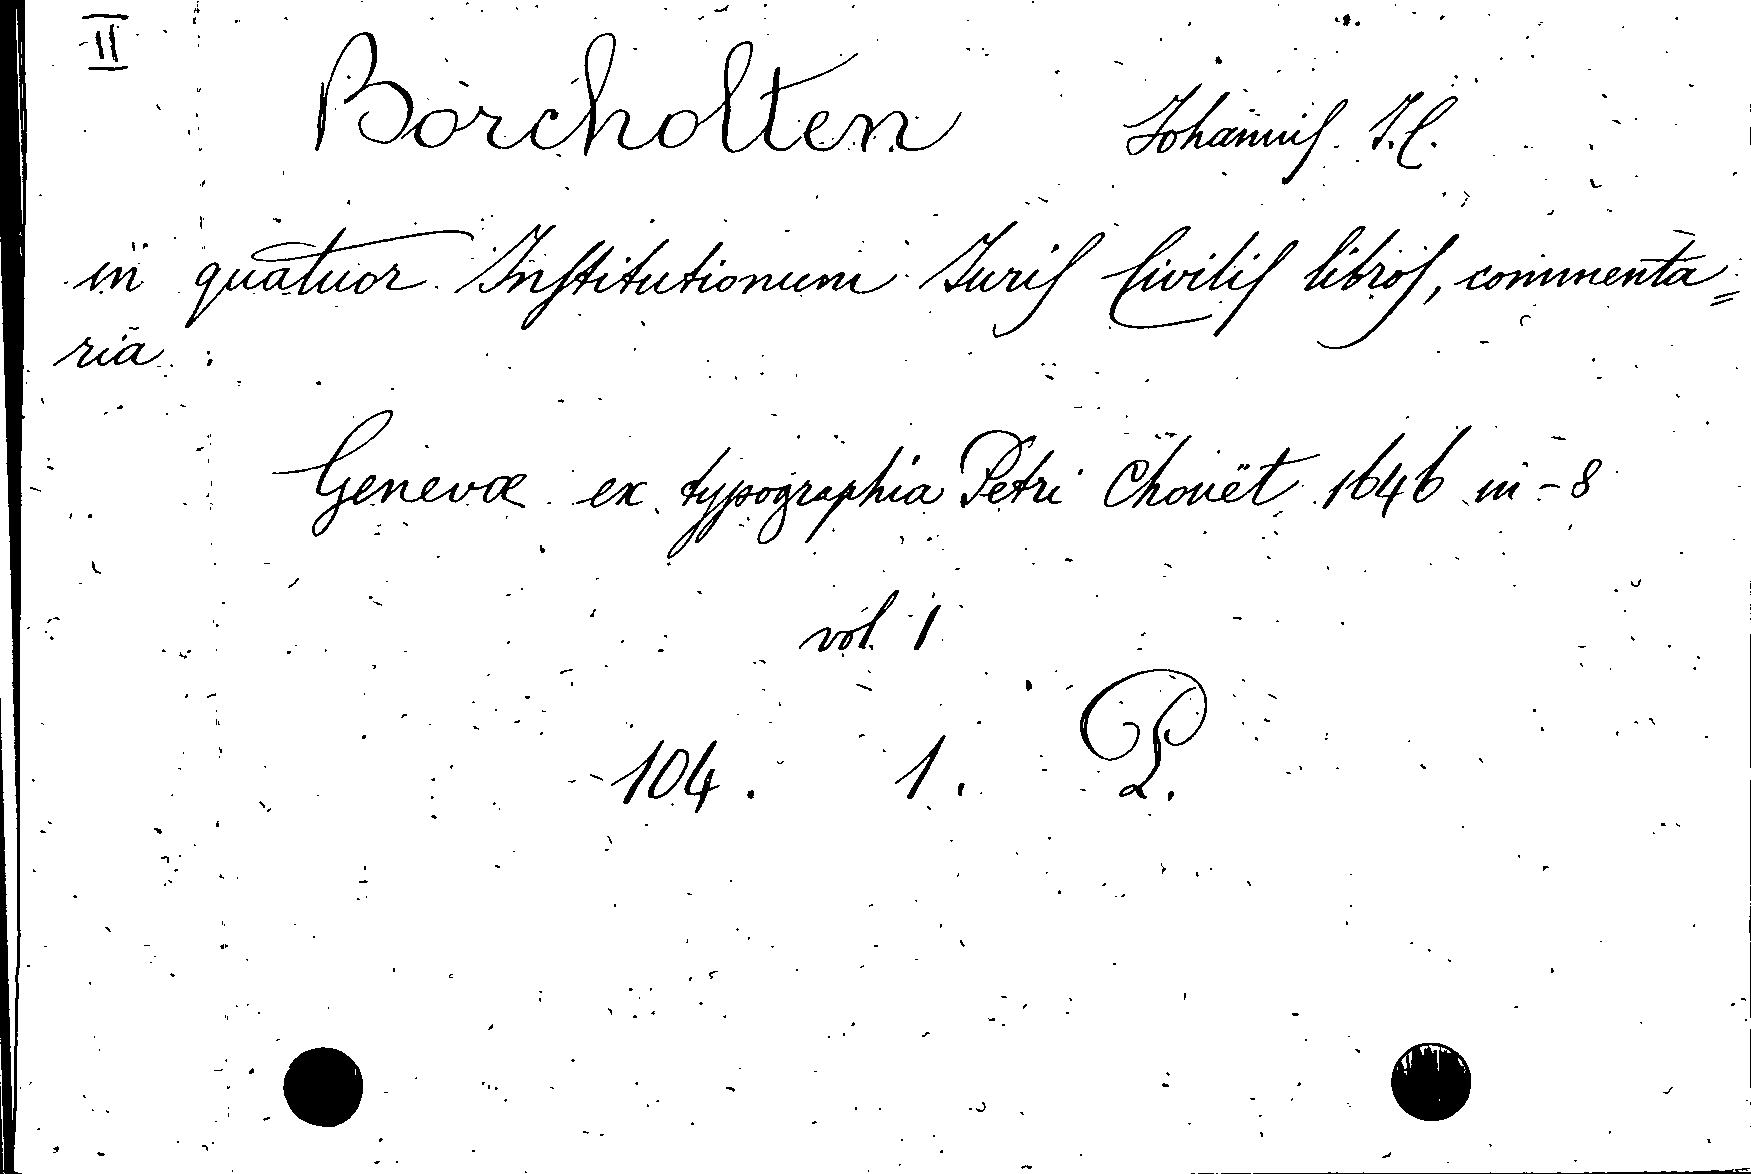 II
Borcholten Johannis J.C.
in quatuor Institutionum Juris Civilis libros, commenta=
ria
Genevæ ex typographia Petri Chouët 1646 in-8
vol. 1
104. 1. P.